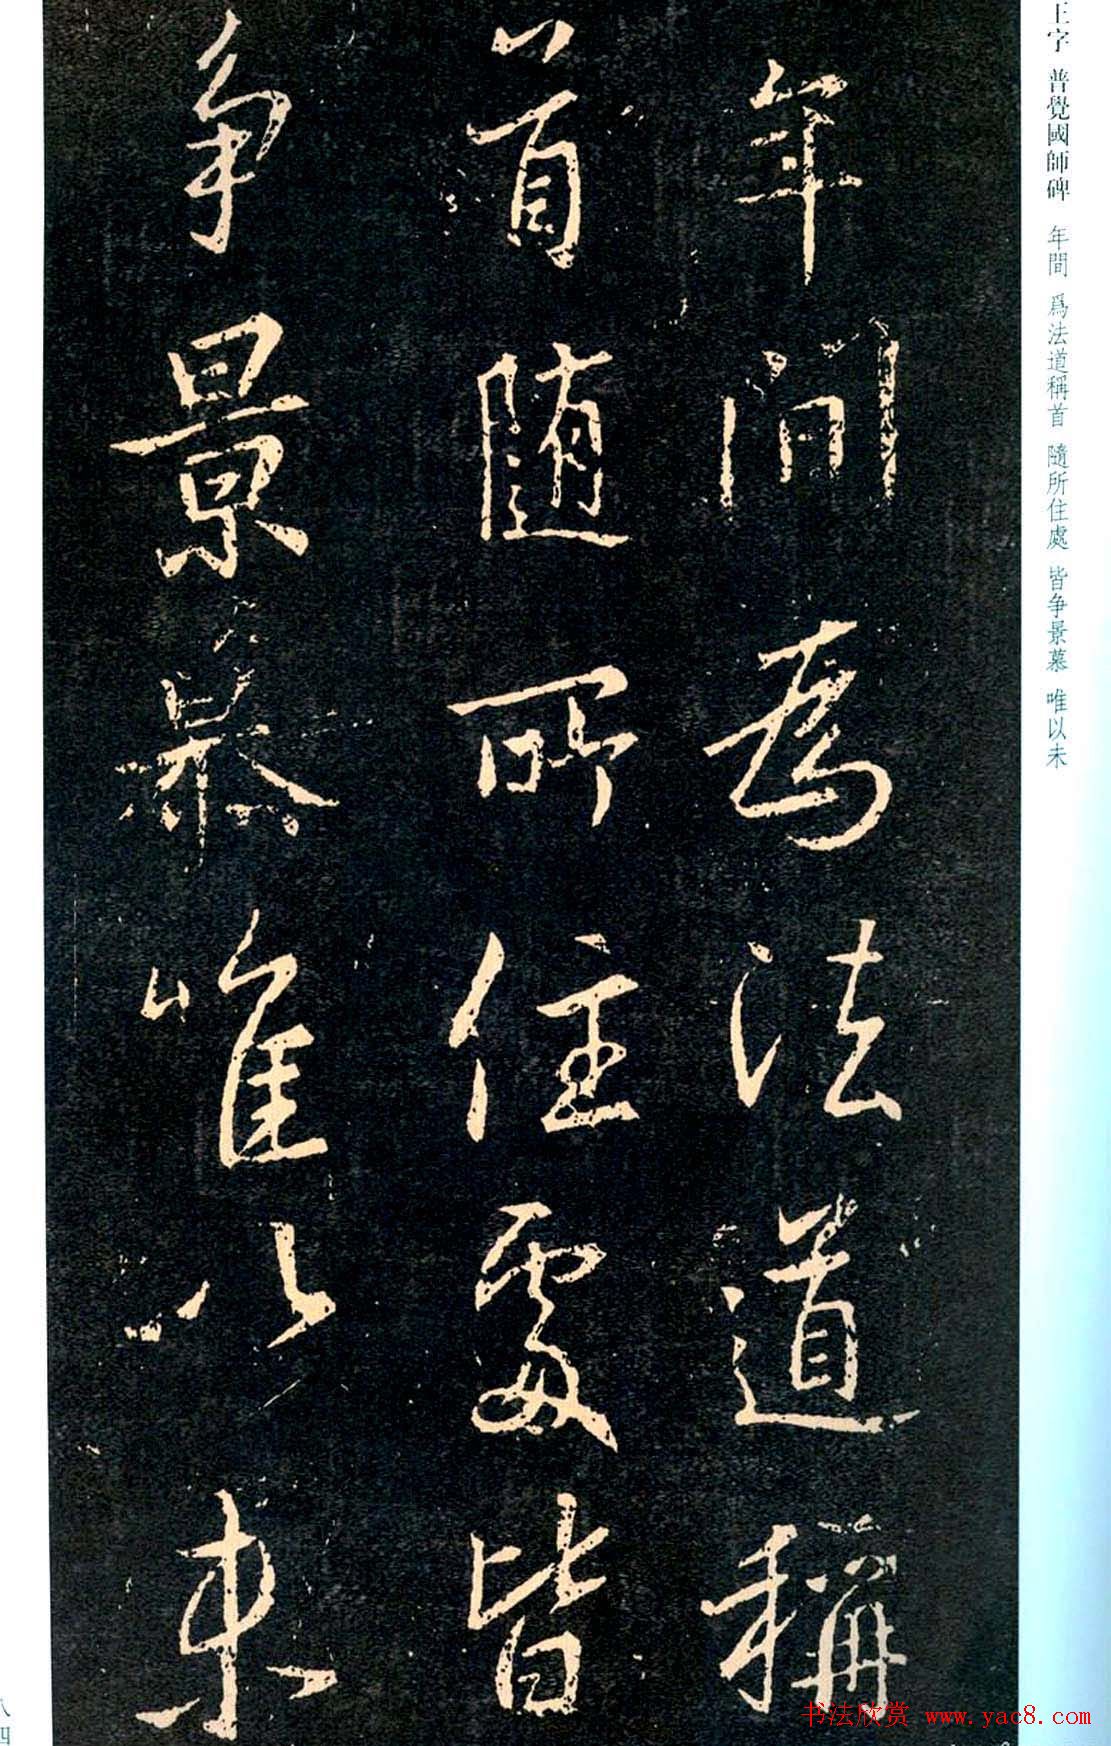 王字 普覺國師碑 年間 爲法道稱首 隨所住處 皆争景慕 唯以未
年間爲法道稱
首随所住處皆
争景慕唯以未
八四
书法欣赏 www.yac8.com